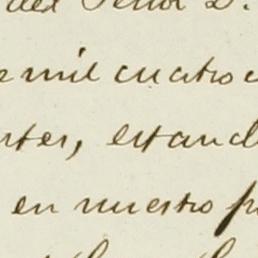 del Señor D.
mil cuatro c
rtes, estand
en nuestro p